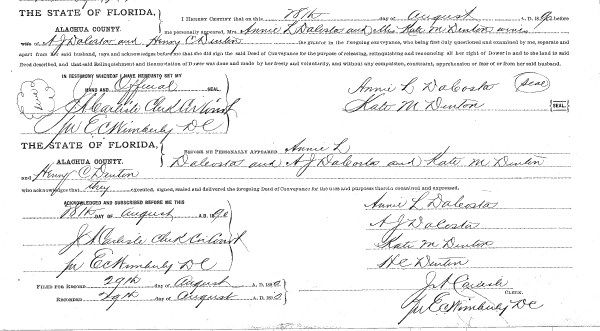 THE STATE OF FLORIDA,
ALACHUA COUNTY.
I HEREBY CERTIFY that on this 18th day of August A. D. 1890 before
me personally appeared, Mrs. Annie L DaCosta and Mrs Kate M Denton wives
of A J DaCosta and Henry C Denton the grantor in the foregoing conveyance, who being first duly questioned and examined by me, separate and
apart from said husband, says and acknowledges before me that she did sign the said Deed of Conveyance for the purpose of releasing, relinquishing and renouncing all her right of Dower in and to the land in said
Deed described, and that said Relinquishment and Renunciation of Dower was done and made by her freely and voluntarily, and without any compulsion, constraint, apprehension or fear of or from her said husband.
IN TESTIMONY WHEREOF I HAVE HEREUNTO SET MY
HAND AND Official SEAL.
J A Carlisle Clerk Cir Court
pr E C Wimberly DC
Annie L DaCosta (Seal)
Kate M Denton [SEAL.
THE STATE OF FLORIDA,
ALACHUA COUNTY.
BEFORE ME PERSONALLY APPEARED Annie L
DaCosta and A J DaCosta and Kate M Denton
and Henry C Denton
who acknowledged that they executed, signed, sealed and delivered the foregoing Deed of Conveyance for the uses and purposes therein contained and expressed.
ACKNOWLEDGED AND SUBSCRIBED BEFORE ME THIS
18th DAY OF August A. D. 1890
J A Carlisle Clerk Cir Court
pr E C Wimberly DC
Annie L DaCosta
A J DaCosta
Kate M Denton
H C Denton
FILED FOR RECORD 29th day of August A. D. 1890
RECORDED 29th day of August A. D. 1890
J A Carlisle CLERK.
pr E C Wimberly DC